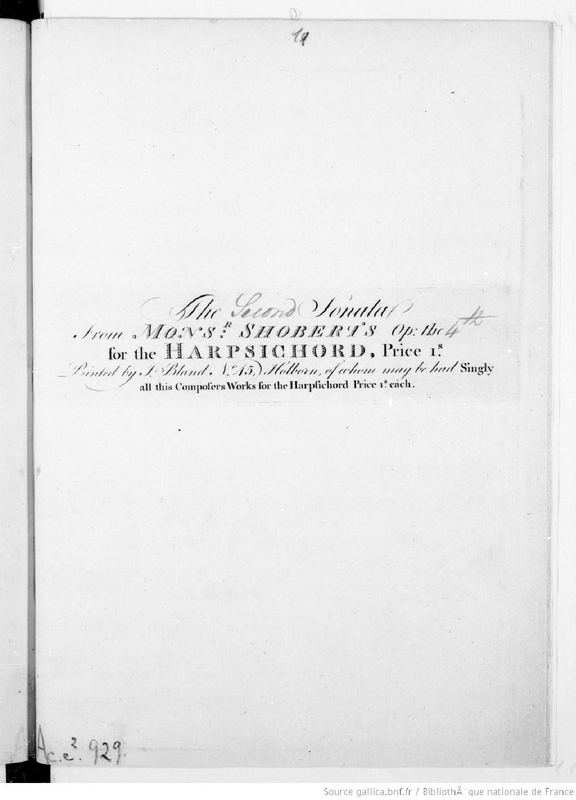 19
The Second Sonata
From MONS.R SHOBERTS Op: the 4th
for the HARPSICHORD, Price 1s.
Printed by J. Bland No. 45, Holborn, of whom may be had Singly
all this Composers Works for the Harpsichord Price 1s. each.
Ac.e2. 929
Source gallica.bnf.fr / BibliothÃ¨que nationale de France